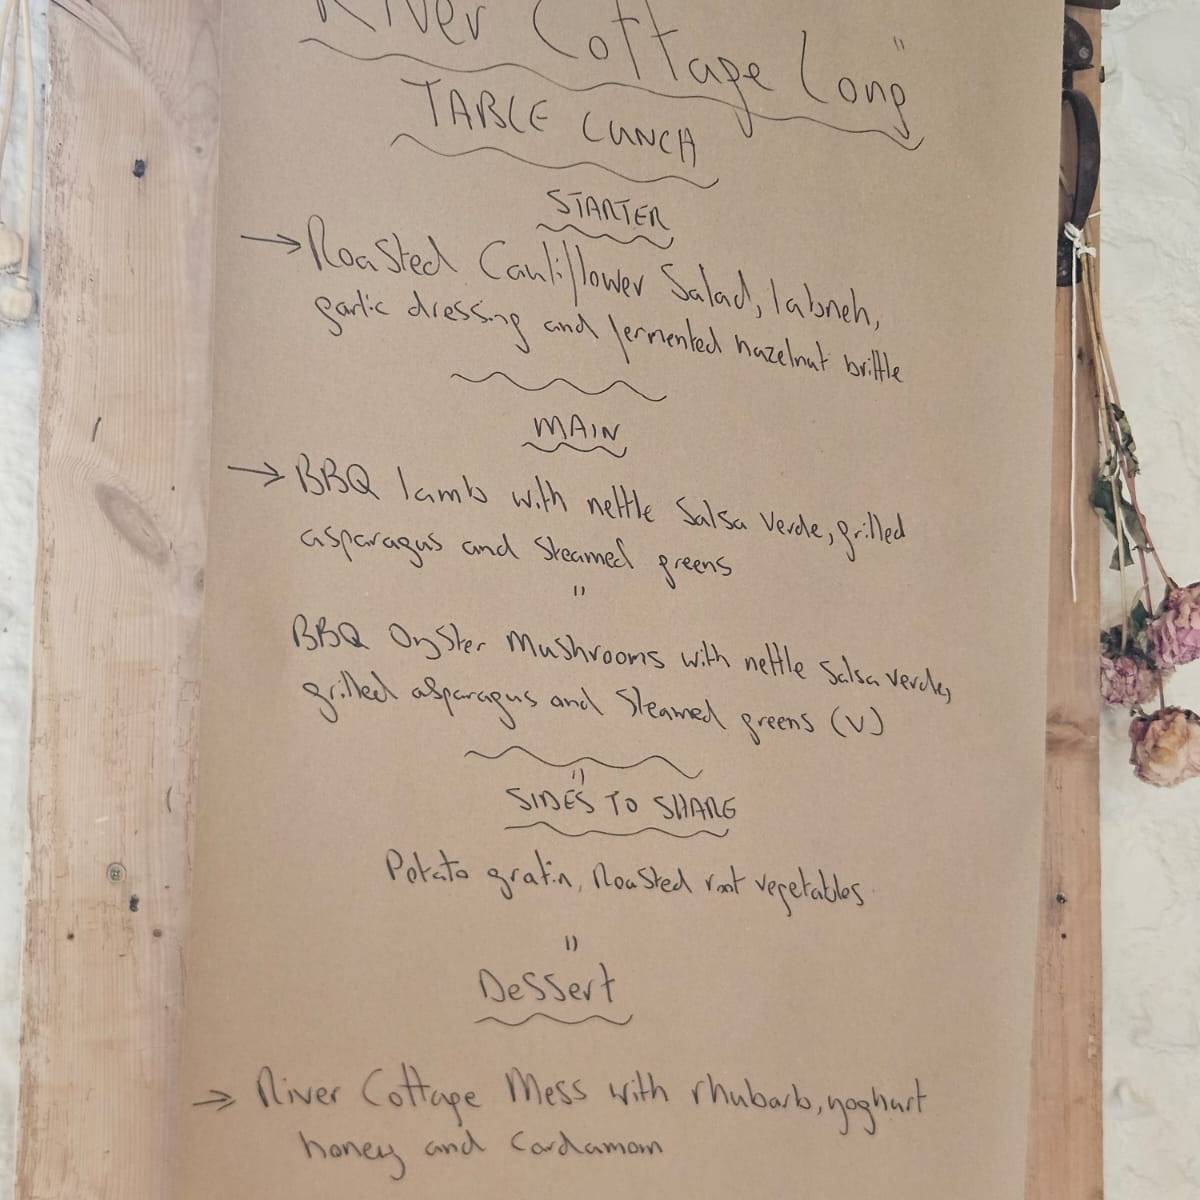 River Cottage Long
TABLE LUNCH
STARTER
→ Roasted Cauliflower Salad, labneh,
garlic dressing and fermented hazelnut brittle
MAIN
→ BBQ lamb with nettle Salsa Verde, grilled
asparagus and Steamed greens
"
BBQ Oyster Mushrooms with nettle Salsa verde,
grilled asparagus and Steamed greens (V)
"
SIDES TO SHARE
Potato gratin, Roasted root vegetables
"
Dessert
→ River Cottage Mess with rhubarb, yoghurt
honey and Cardamom